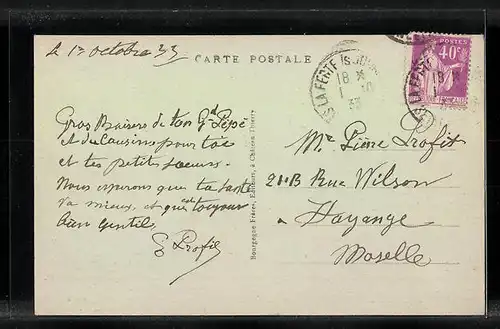 Le 1er octobre 33
CARTE POSTALE
LA FERTÉ S/S JOUARRE
18 H
1 XI
33
POSTES
40c
Gros Baisers de ton Gd Pépé
et du Cousin pour toi
et tes petits soeurs.
Nous espérons que ta santé
va mieux, et que toujours
bien gentils
Profit
Bourgogne Frères, Éditeurs, à Château-Thierry
Mr Pierre Profit
21 B Rue Wilson
à Hayange
Moselle